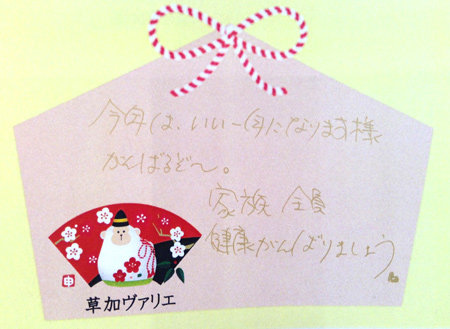 今年は、いい一年になります様
がんばるぞ〜。
家族 全員
健康がんばりましょう。
申
草加ヴァリエ